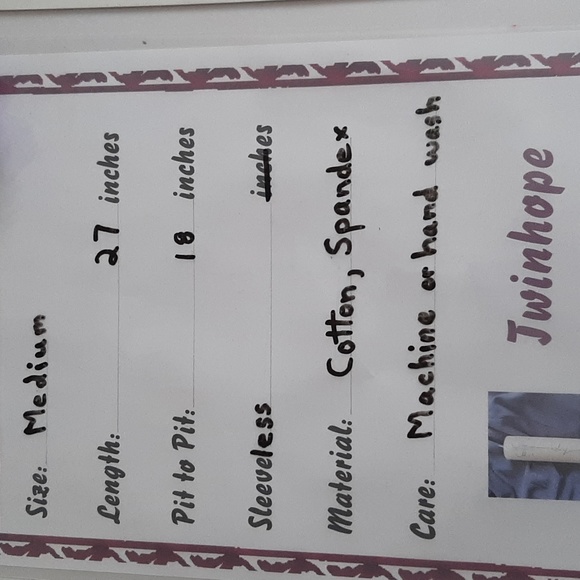 Size: Medium
Length: 27 inches
Pit to Pit: 18 inches
Sleeveless inches
Material: Cotton, Spandex
Care: Machine or hand wash
Twinhope